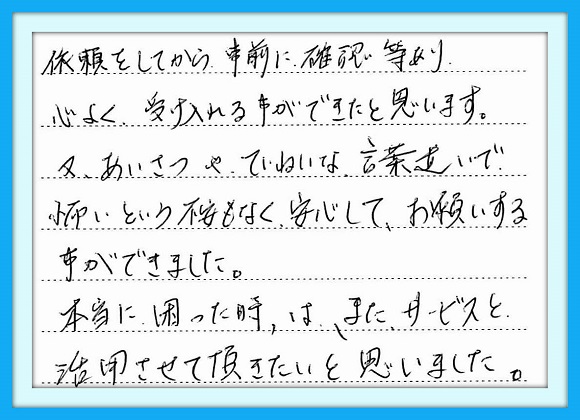 依頼をしてから事前に確認等あり
心よく、受け入れる事ができたと思います。
又、あいさつや、ていねいな言葉遣いで
怖いという不安もなく、安心して、お願いする
事ができました。
本当に困った時、は、また、サービスを
活用させて頂きたいと思いました。